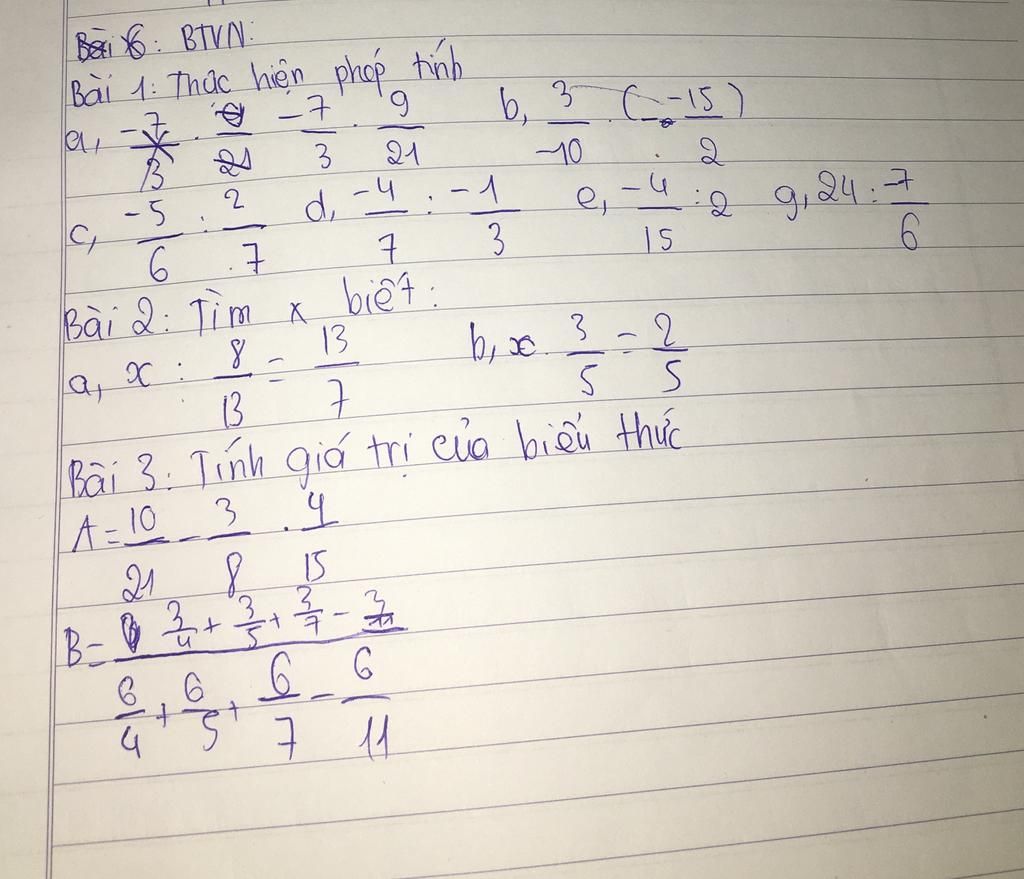 Bài 6: BTVN:
Bài 1: Thức hiện phóp tính
a, -7/3 . 9/21 b, 3/-10 . (-15/2)
c, -5/6 : 2/7 d, -4/7 : -1/3 e, -4/15 : 2 g, 24 : -7/6
Bài 2: Tìm x biết:
a, x : 8/13 = 13/7 b, x . 3/5 = 2/5
Bài 3: Tính giá trị của biếu thức
A = 10/21 - 3/8 . 4/15
B = 3/4 + 3/5 + 3/7 - 3/11
6/4 + 6/5 + 6/7 - 6/11